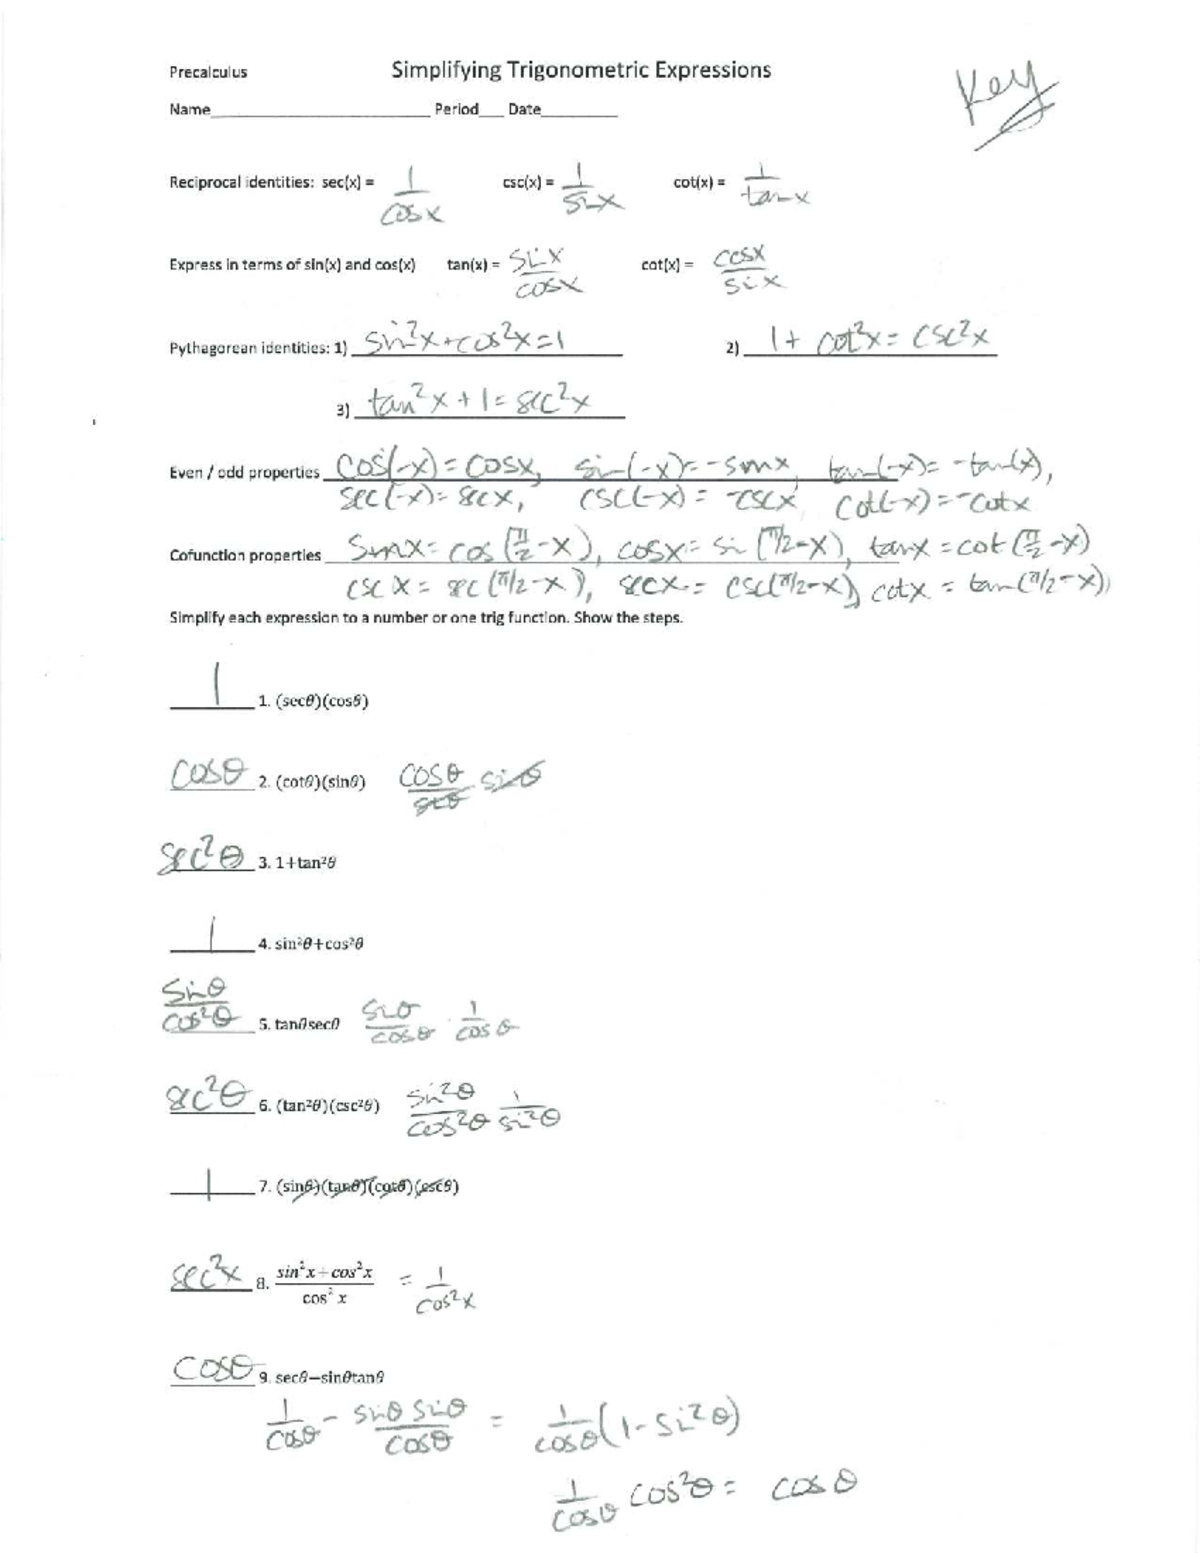 Precalculus Simplifying Trigonometric Expressions Key
Name____________________ Period___ Date________
Reciprocal identities: sec(x) = 1/cosx csc(x) = 1/sinx cot(x) = 1/tanx
Express in terms of sin(x) and cos(x) tan(x) = sinx/cosx cot(x) = cosx/sinx
Pythagorean identities: 1) sin²x+cos²x=1 2) 1+ cot²x = csc²x
3) tan²x + 1 = sec²x
Even / odd properties cos(-x) = cosx, sin(-x) = -sinx, tan(-x) = -tan(x),
sec(-x) = secx, csc(-x) = -cscx, cot(-x) = -cotx
Cofunction properties sinx = cos(π/2 - x), cosx = sin(π/2 - x), tanx = cot(π/2 - x)
cscx = sec(π/2 - x), secx = csc(π/2 - x), cotx = tan(π/2 - x)
Simplify each expression to a number or one trig function. Show the steps.
1 1. (secθ)(cosθ)
cosθ 2. (cotθ)(sinθ) cosθ/sinθ sinθ
sec²θ 3. 1+tan²θ
1 4. sin²θ+cos²θ
sinθ/cos²θ 5. tanθsecθ sinθ/cosθ · 1/cosθ
sec²θ 6. (tan²θ)(csc²θ) sin²θ/cos²θ 1/sin²θ
1 7. (sinθ)(tanθ)(cotθ)(cscθ)
sec²x 8. sin²x+cos²x/cos²x = 1/cos²x
cosθ 9. secθ−sinθtanθ
1/cosθ - sinθ sinθ/cosθ = 1/cosθ (1 - sin²θ)
1/cosθ cos²θ = cosθ